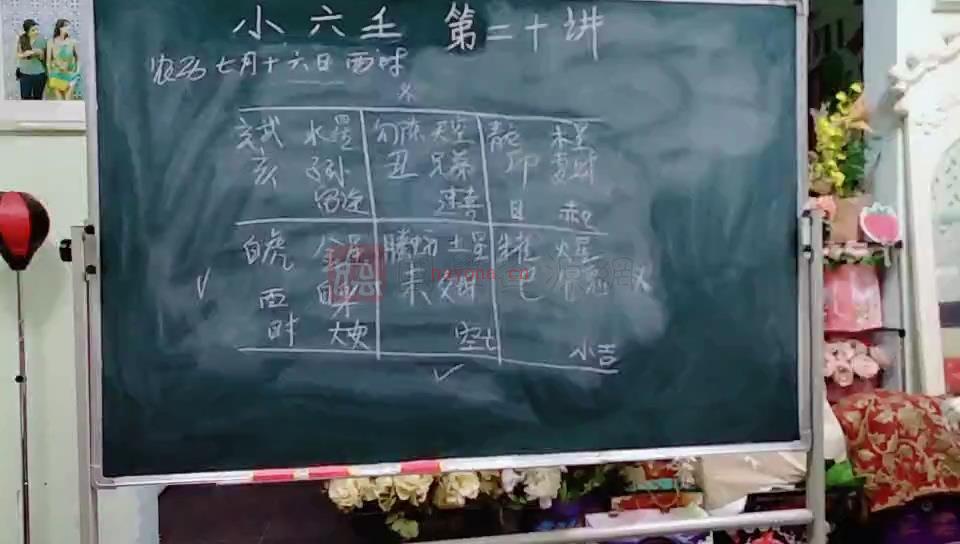 小六壬 第二十讲
农历七月十六日 酉时
玄武 水星 勾陈 天空 青龙 木星
亥 子孙 丑 兄弟 卯 妻财
留连 速喜 日 赤口
白虎 金星 腾蛇 土星 朱雀 火星
酉 自身 未 父母 巳
时 大安 空亡 小吉
nzyona.cn